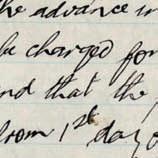 the advance in
be charged for
and that the
from 1st day o